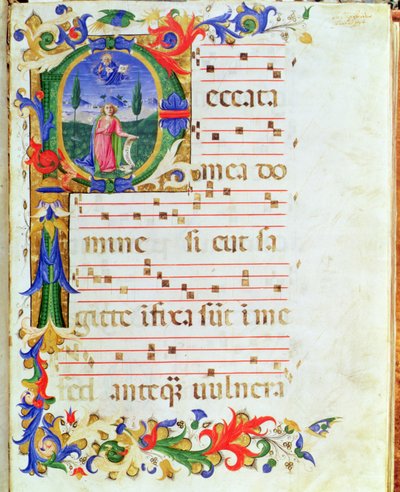 Peccata
mea do
mine si cut sa
gitte īfixa sūt ī me
sed anteqȝ uulnera